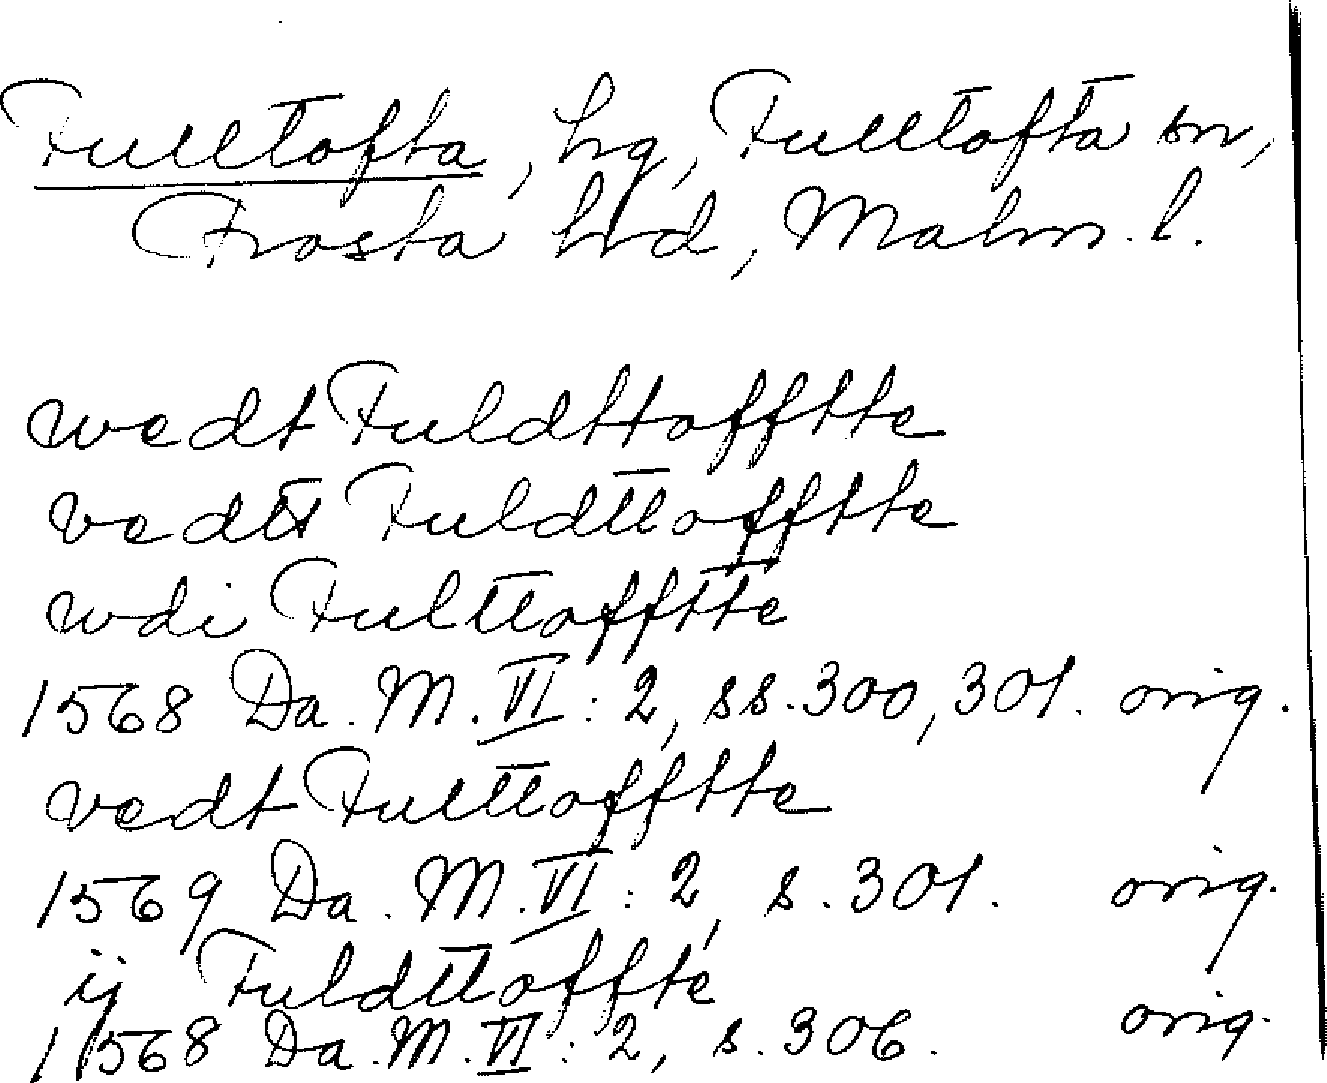 Fulltofta, hg, Fulltofta sn,
Frosta hd, Malm. l.
wedt Fuldttofftte
vedtt Fuldttofftte
wdi Fulttofftte
1568 Da. M. VI: 2, ss. 300, 301. orig.
vedt Fulttofftte
1569 Da. M. VI: 2, s. 301. orig.
ij Fuldttoffte
1568 Da. M. VI: 2, s. 306. orig.